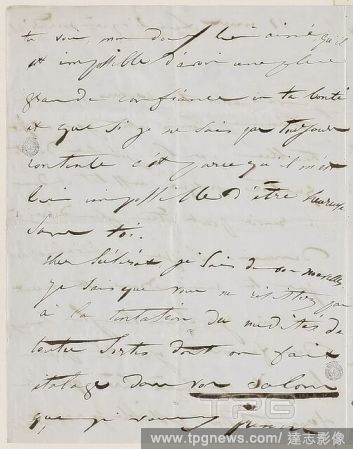 ta vue, mon doux bien aimé qu'il
est impossible d'avoir une plus
grande confiance en ta bonté
et que si je ne suis pas toujours
contente c'est parce qu'il m'est
bien impossible d'être heureuse
sans toi.
je sais de
je sais que vous ne résistez pas
à la tentation du
toutes sortes dont on fait
étalage dans vos salons
que
TPG
www.tpgnews.com / 達志影像